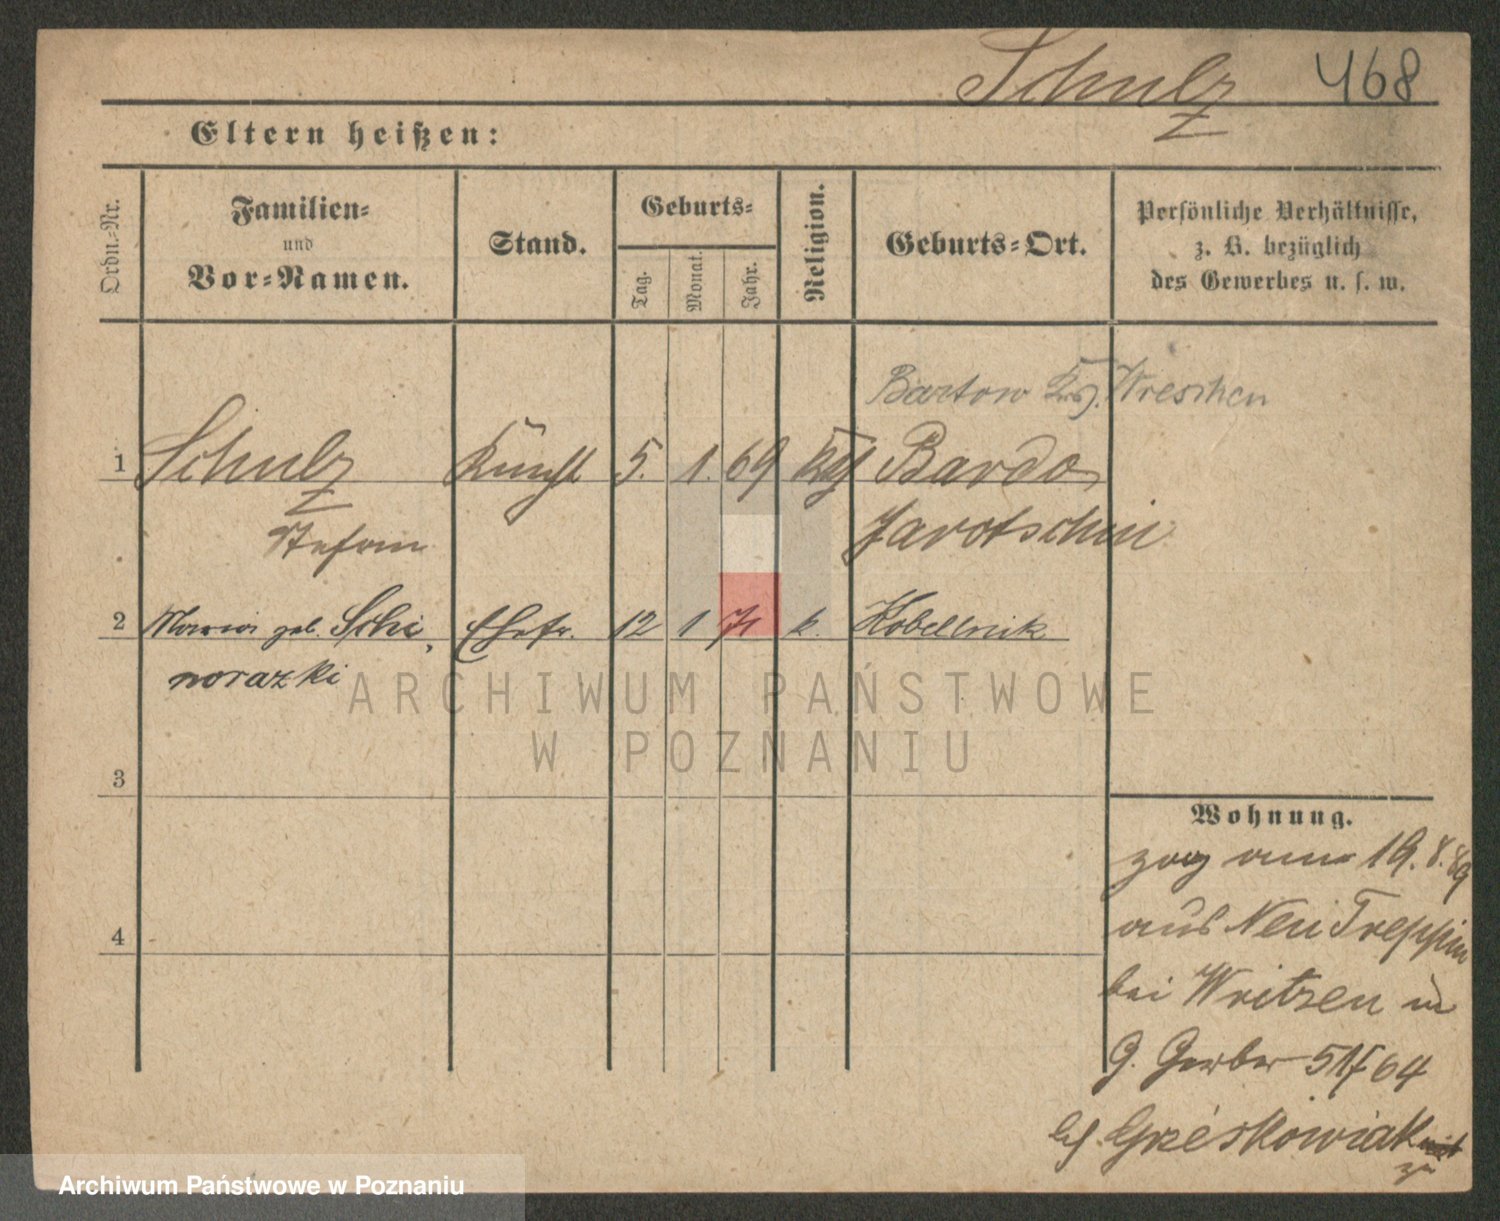 Schulz 468
Eltern heißen:
Ordn.-Nr.
Familien-
und
Vor-Namen.
Stand.
Geburts-
Tag.
Monat.
Jahr.
Religion.
Geburts-Ort.
Persönliche Verhältnisse,
z. B. bezüglich
des Gewerbes u. s. w.
Bartow Wreschen
1 Schulz 5. 1. 69 Bardo
Stefan Jarotschin
2 Maria geb. Schi Ehefr. 12 1 71 k. Kobellnik
norazki
3
4
Wohnung.
zog am 19.8.89
aus Neu Treppin
bei Writzen in
G. Gerber 64
bei Grzéskowiak
zu
ARCHIWUM PAŃSTWOWE
W POZNANIU
Archiwum Państwowe w Poznaniu